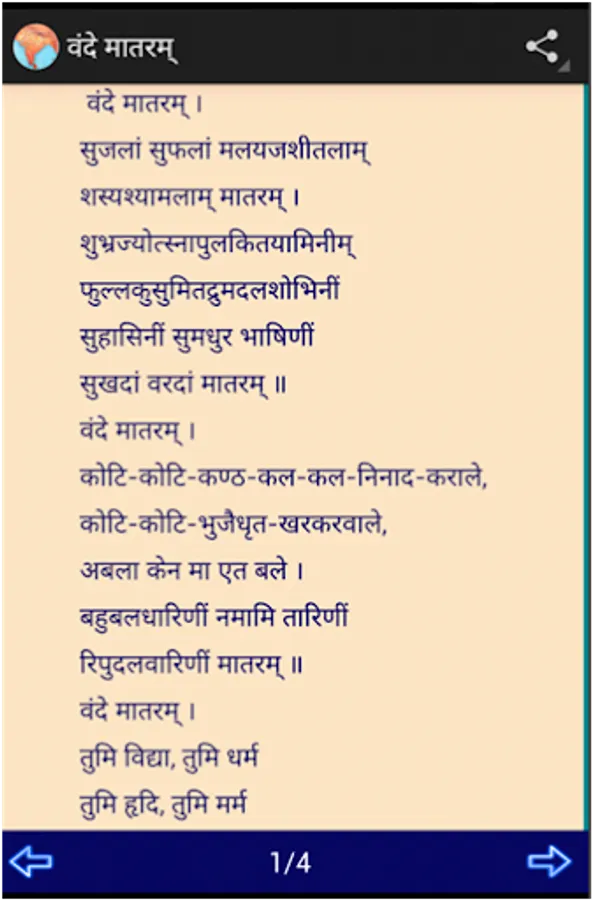 वंदे मातरम्
वंदे मातरम् ।
सुजलां सुफलां मलयजशीतलाम्
शस्यश्यामलाम् मातरम् ।
शुभ्रज्योत्स्नापुलकितयामिनीम्
फुल्लकुसुमितद्रुमदलशोभिनीं
सुहासिनीं सुमधुर भाषिणीं
सुखदां वरदां मातरम् ॥
वंदे मातरम् ।
कोटि-कोटि-कण्ठ-कल-कल-निनाद-कराले,
कोटि-कोटि-भुजैधृत-खरकरवाले,
अबला केन मा एत बले ।
बहुबलधारिणीं नमामि तारिणीं
रिपुदलवारिणीं मातरम् ॥
वंदे मातरम् ।
तुमि विद्या, तुमि धर्म
तुमि हृदि, तुमि मर्म
1/4